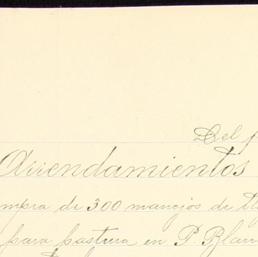 Del
Arrendamientos
mpra de 300 manojos de
para pastura en P. Blan